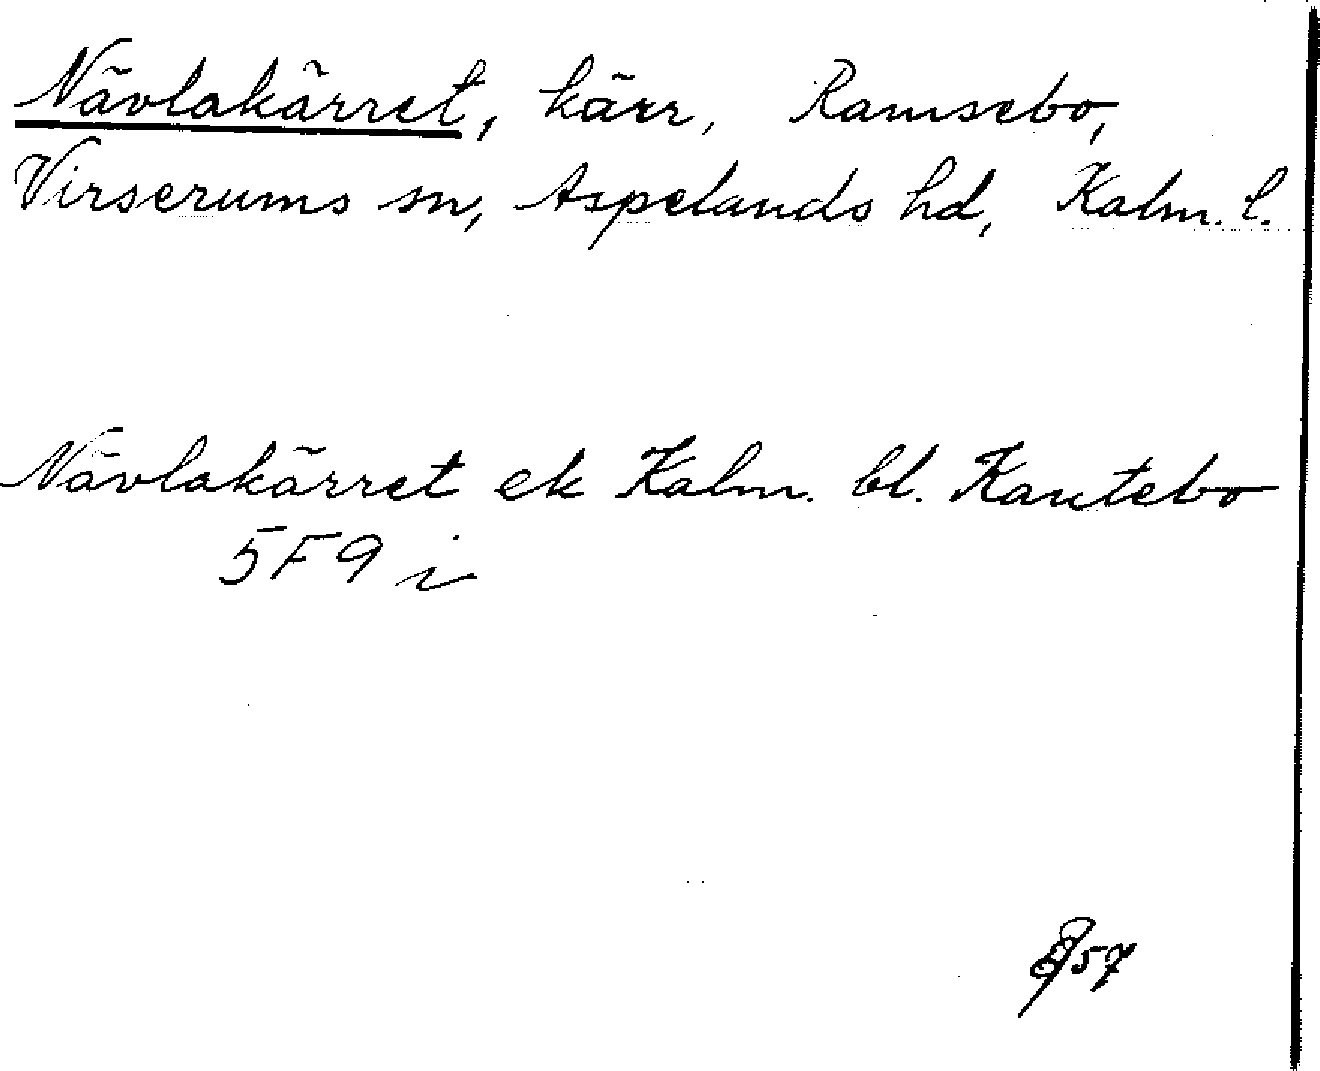 Nävlakärret, kärr, Ramsebo,
Virserums sn, Aspelands hd, Kalm. l.
Nävlakärret ek Kalm. bl. Kantebo
5F9i
57